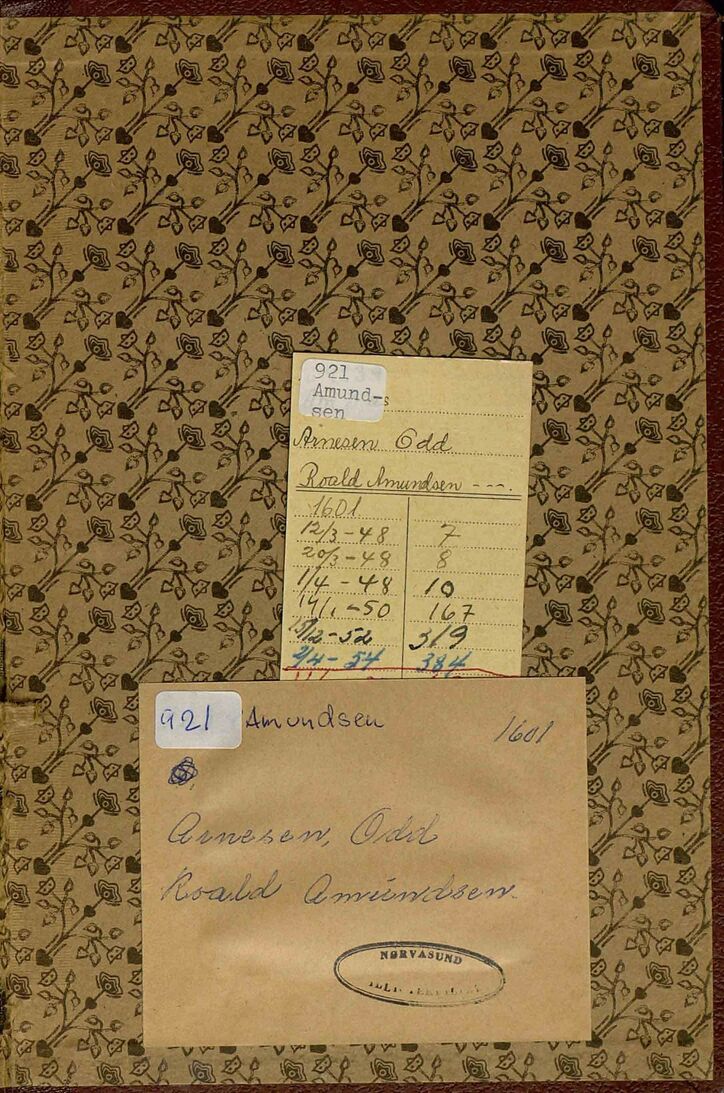 921
Amund-s
sen
Arnesen Odd
Roald Amundsen ---.
1601
12/3-48 7
20/3-48 8
1/4-48 10
14/1-50 167
/2-52 319
2/4-54 384
921 Amundsen 1601
Arnesen, Odd
Roald Amundsen.
NØRVASUND